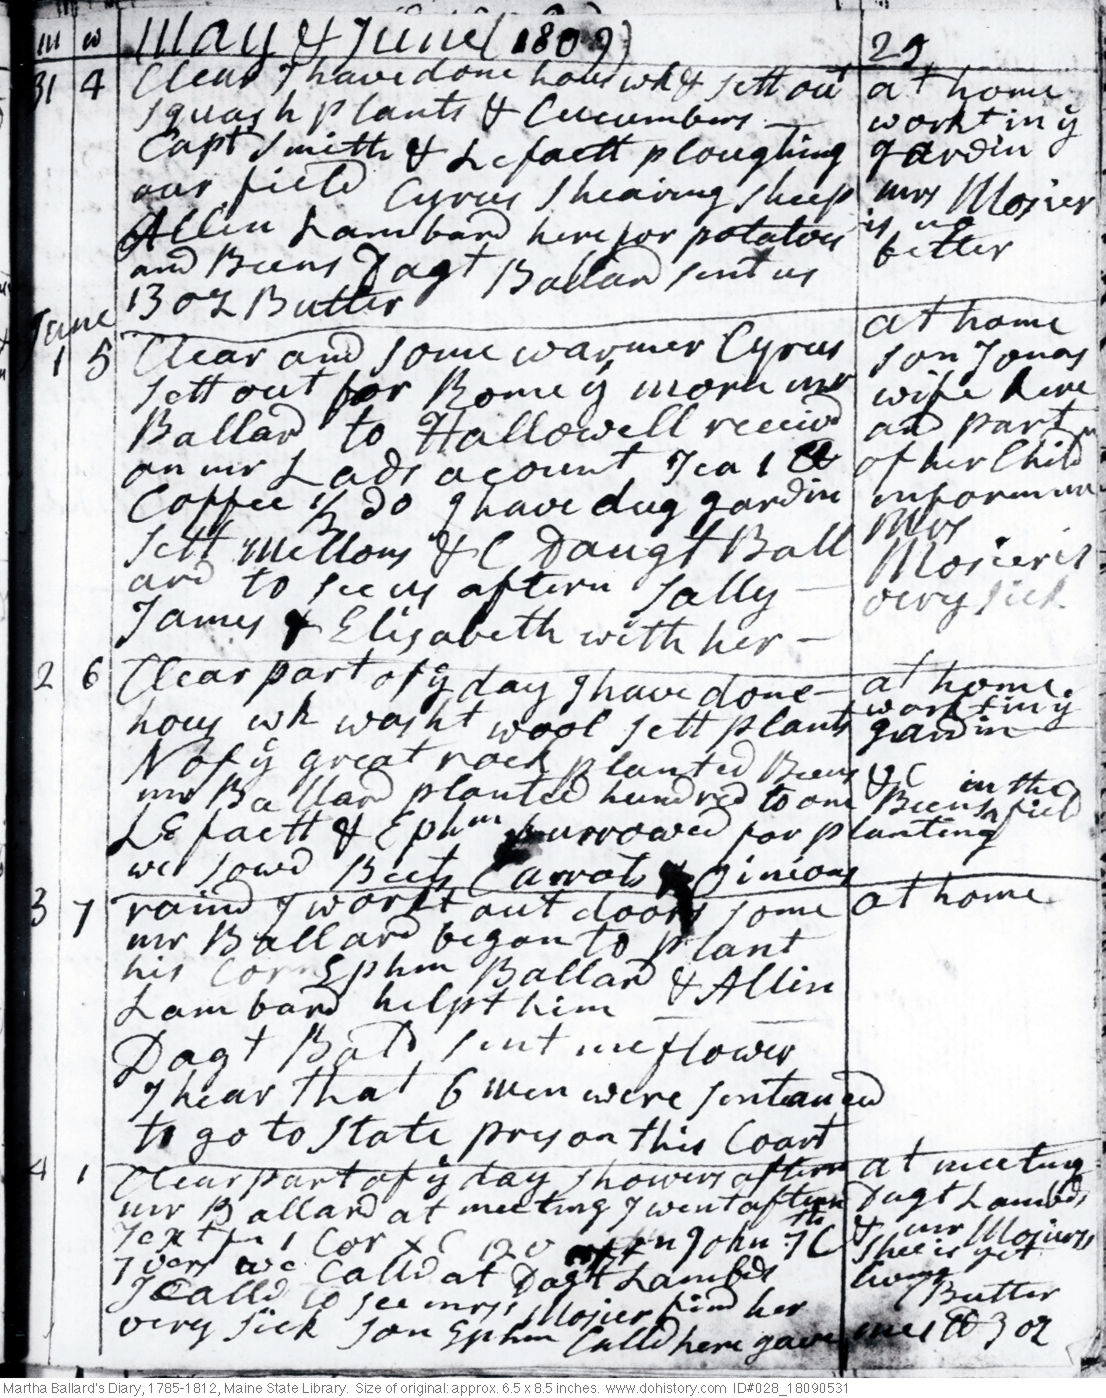 m w May & June (1809) 29
31 4 Clear I have done hous wk & sett out
squash plants & Cucumbers
Capt Smith & Lefaett ploughing
our field Cyrus shearing sheep
Allin Lambard here for potatoes
and Beens Dagt Ballard sent us
13 oz Butter
at home
workt in ÿ
gardin
mrs Mosier
is no
better
June
1 5 Clear and some warmer Cyrus
sett out for Rome ÿ morn mr
Ballard to Hallowell receivd
on mr Lads acount Tea 1 lb
Coffee ½ do I have dug gardin
sett mellons & C Daugt Ball
ard to see us aftern Sally
James & Elisabeth with her
at home
son Jonas
wife here
and part
of her Child
Mrs
Mosier is
very sick
2 6 Clear part of ÿ day I have done
hous wk washt wool sett plants
N of ÿ great rock planted Beens & C in the
mr Ballard planted hundred to one Beens field
Lefaett & Ephm furrowed for planting
we sowd Beets Carrots & Oinions
at home
workt in ÿ
gardin
3 7 raind I workt out doors some
mr Ballard began to plant
his Corn Ephm Ballard & Allin
Lambard helpt him
Dagt Bald sent me flower
I hear that 6 men were sentanced
to go to State preson this Coart
at home
4 1 Clear part of ÿ day showers aftern
mr Ballard at meeting I went aftern
Text 1 Cor John 7 C
vers we Calld at Dagt Lambds
I Calld to see mrss Mosier find her
very sick son Ephm Calld here gave me 1 lb 3 oz
at meeting
Dagt Lambds
& mr Mosiers
shee is yet
living
Butter
Martha Ballard's Diary, 1785-1812, Maine State Library. Size of original: approx. 6.5 x 8.5 inches. www.dohistory.com ID#028_18090531